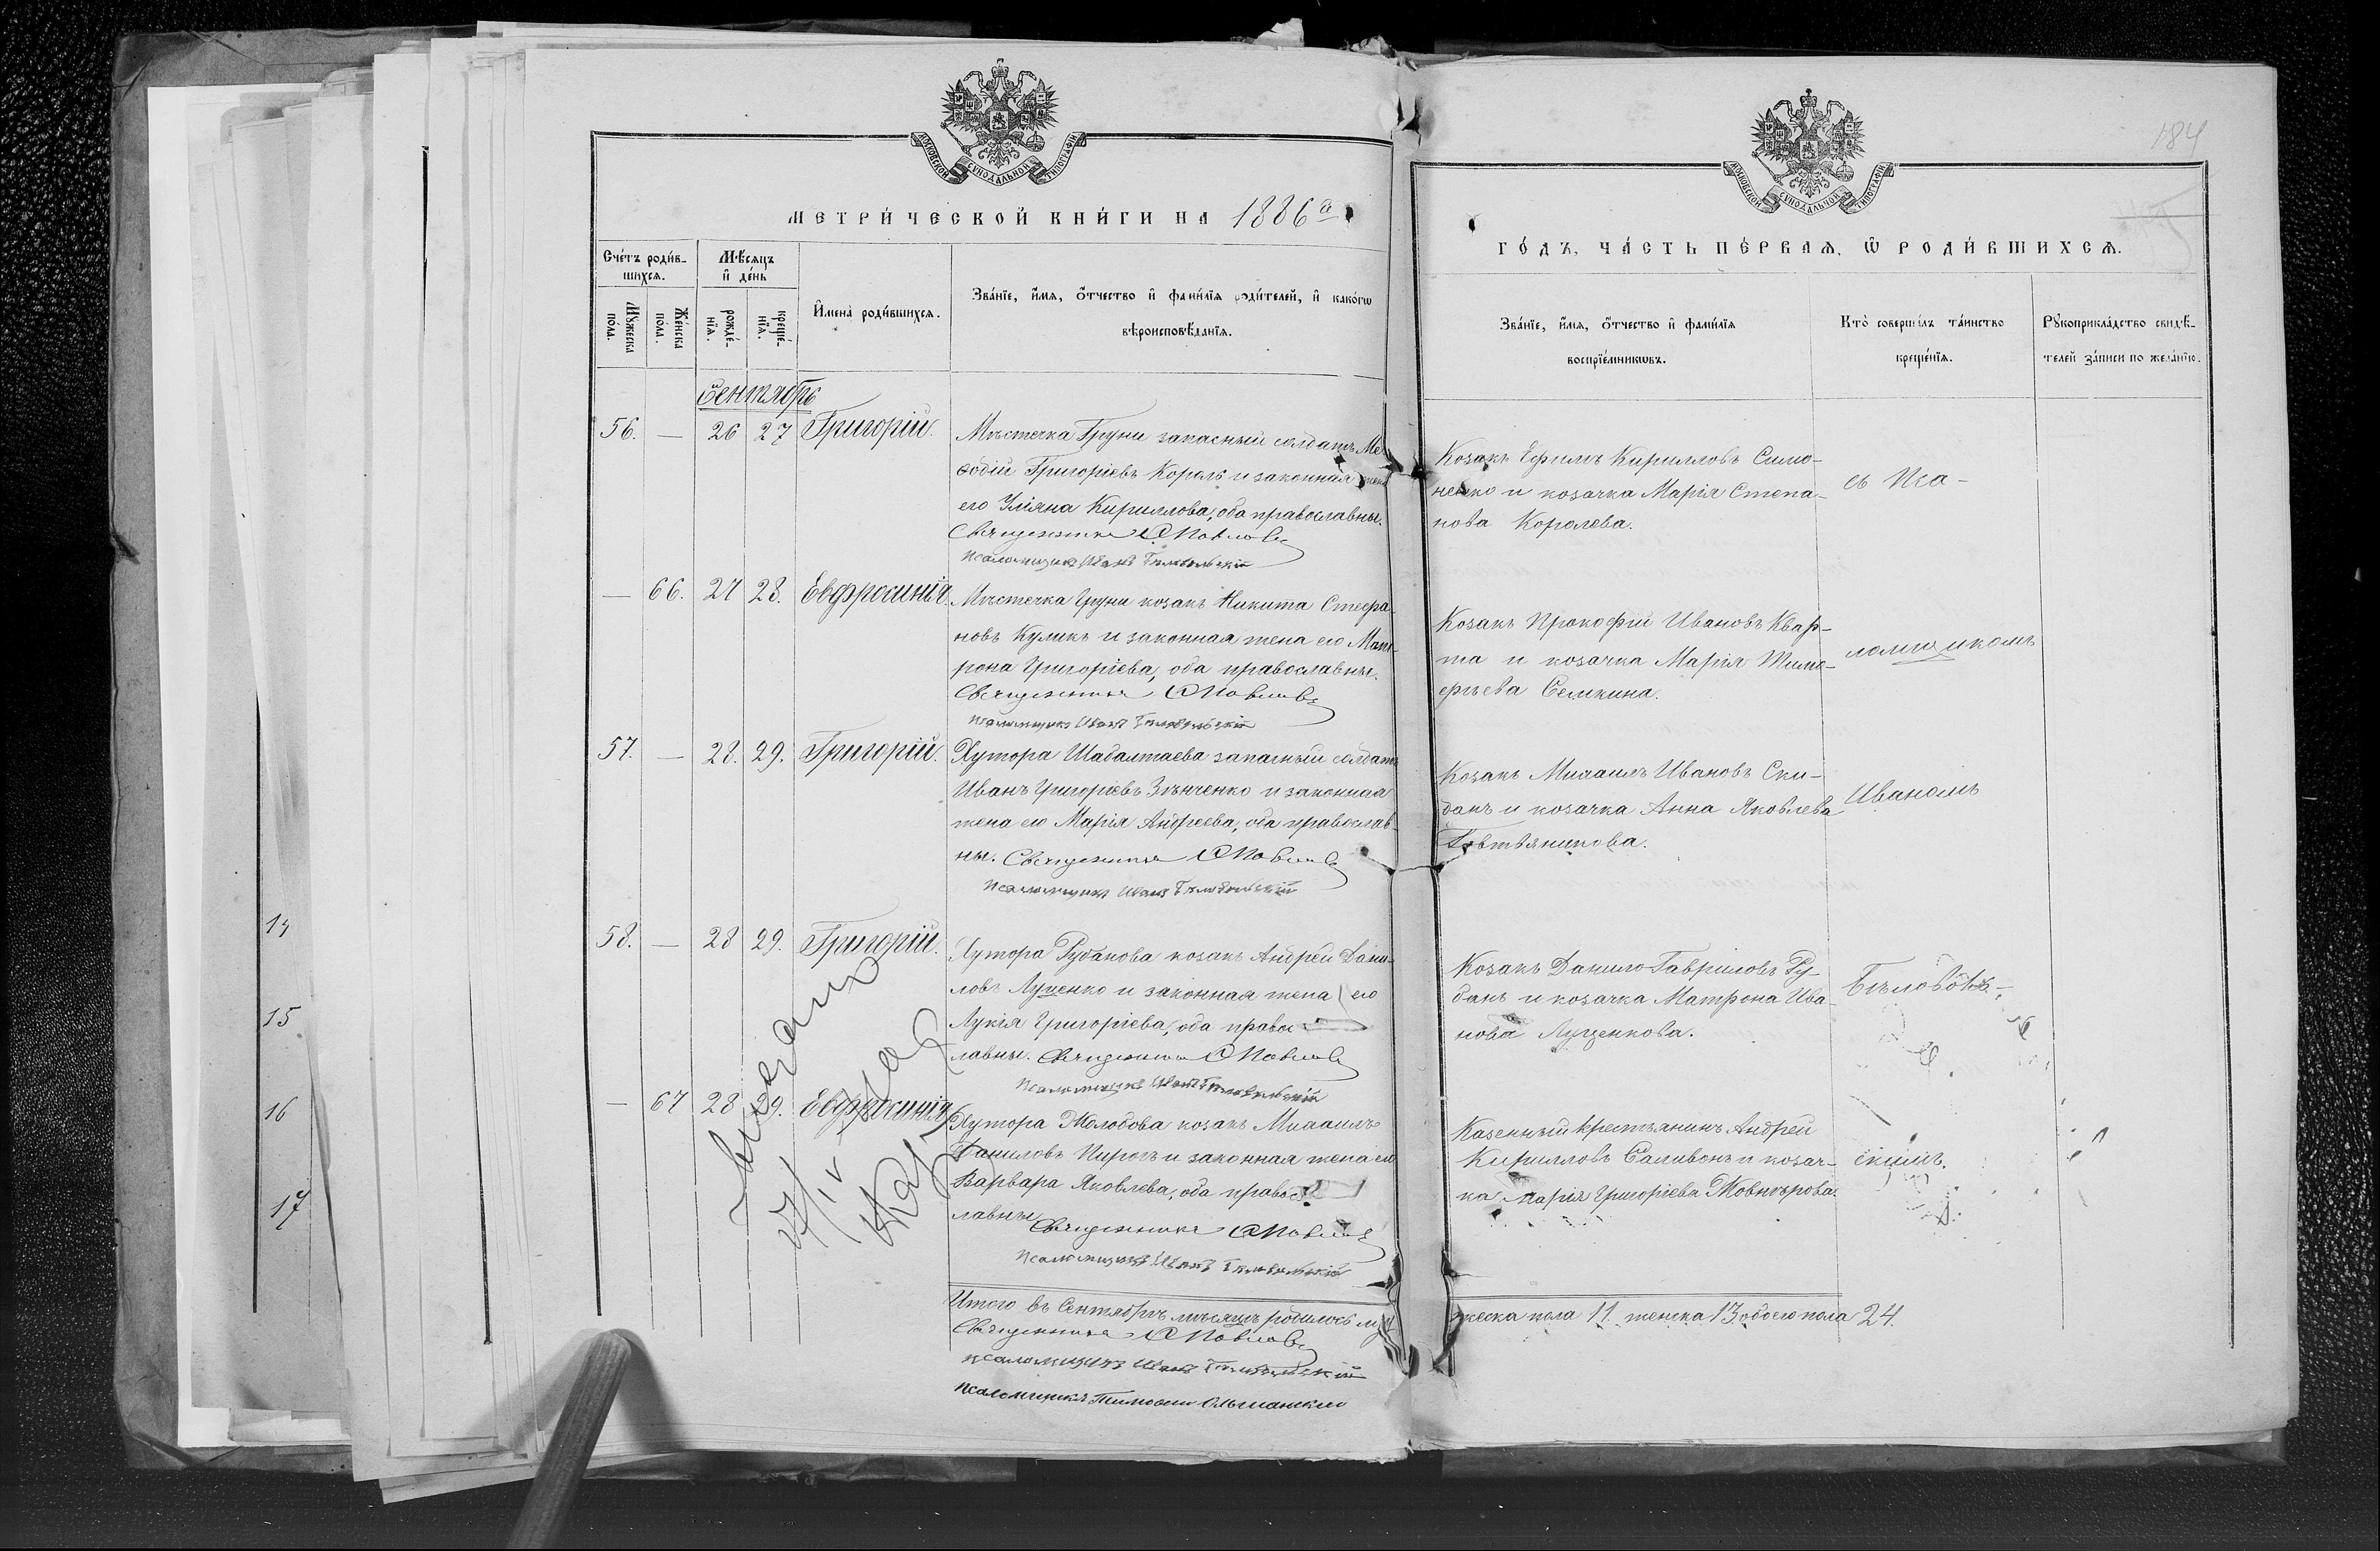 МОСКОВСКОЙ СѴНОДАЛЬНОЙ ТИПОГРАФІИ
МЕТРИ́ЧЕСКОЙ КНИ́ГИ НА 1886й
Сче́тъ роди́в-
шихся.
Мѣ́сяцъ
и҆ де́нь
Му́жеска
по́ла.
Же́нска
по́ла.
рожде́-
нїѧ.
креще́-
нїѧ.
И҆мена̀ роди́вшихсѧ.
Зва́нїе, и҆́мѧ, ѻ҆́тчество и҆ фами́лїѧ роди́телей, и҆ како́гѡ
вѣроисповѣ́данїѧ.
Сентябрь
56. — 26 27 Григорій.
Мѣстечка Груни запасный солдатъ Ме-
ѳодій Григоріевъ Король и законная жена
его Уліяна Кириллова, оба православны.
Священникъ С Павловъ
Псаломщикъ Иванъ Бѣловольскій
— 66. 27 28. Евфросинія.
Мѣстечка Груни козакъ Никита Стефа-
новъ Куликъ и законная жена его Мат-
рона Григоріева, оба православны.
Священникъ С Павловъ
Псаломщикъ Иванъ Бѣловольскій
57. — 28. 29. Григорій.
Хутора Шабалтаева запасный солдатъ
Иванъ Григоріевъ Зѣнченко и законная
жена его Марія Андреева, оба православ-
ны. Священникъ С Павловъ
Псаломщикъ Иванъ Бѣловольскій
58. — 28 29. Григорій.
Хутора Рубанова козакъ Андрей Дани-
ловъ Луценко и законная жена его
Лукія Григоріева, оба правос-
лавны. Священникъ С Павловъ
Псаломщикъ Иванъ Бѣловольскій
— 67 28 29. Евфросинія
Хутора Жолобова козакъ Михаилъ
Даниловъ Пирогъ и законная жена его
Варвара Яковлева, оба правос-
лавны Священникъ С Павловъ
Псаломщикъ Иванъ Бѣловольскій
Итого въ Сентябрѣ мѣсяцѣ родилось му-
Священникъ С Павловъ
псаломщикъ Иванъ Бѣловольскій
Псаломщикъ Тимоѳей Ольшанскій
14
15
16
17
184
МОСКОВСКОЙ СѴНОДАЛЬНОЙ ТИПОГРАФІИ
ГО́ДЪ, ЧА́СТЬ ПЕ́РВАѦ, Ѽ РОДИ́ВШИХСѦ.
Зва́нїе, и҆́мѧ, ѻ҆́тчество и҆ фами́лїѧ
воспрїе́мникѡвъ.
Кто̀ соверши́лъ та́инство
креще́нїѧ.
Рꙋкоприкла́дство свидѣ́-
телей за́писи по жела́нїю.
Козакъ Ефимъ Кирилловъ Симо-
ненко и козачка Марія Степа-
нова Королева.
съ Пса-
Козакъ Прокофій Ивановъ Квар-
та и козачка Марія Тимо-
фѣева Семкина.
ломщикомъ
Козакъ Михаилъ Ивановъ Ски-
данъ и козачка Анна Яковлева
Иваномъ
Козакъ Данило Гавриловъ Ру-
банъ и козачка Матрона Ива-
нова Луценкова.
Бѣловоль-
Казенный крестьянинъ Андрей
Кирилловъ Саливонъ и козач-
ка Марія Григоріева Жовнѣрова.
скимъ.
жеска пола 11 женска 13 обоего пола 24.